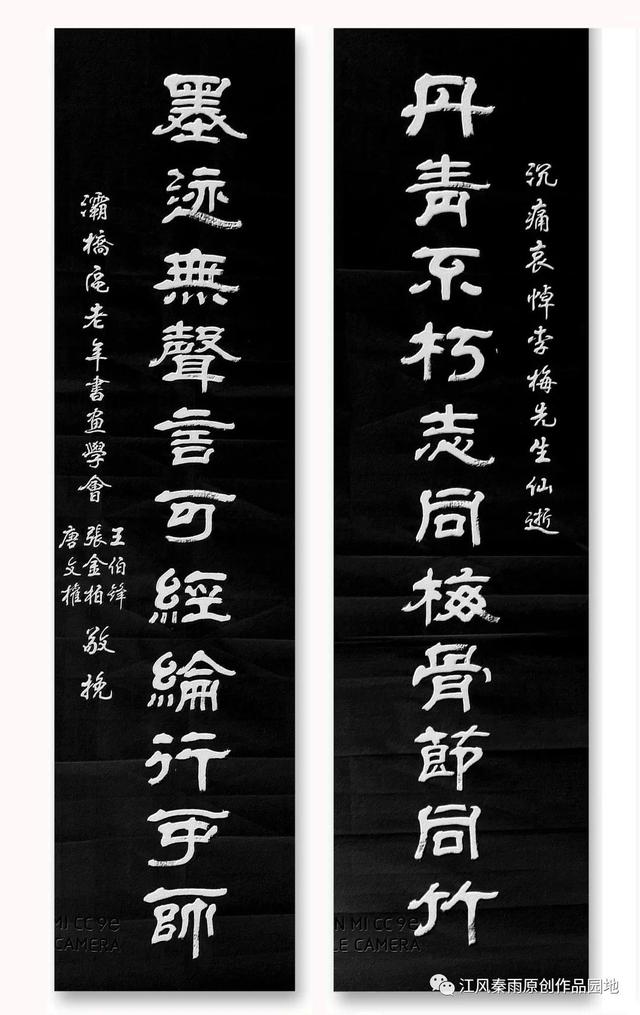 沉痛哀悼李梅先生仙逝
丹青不朽志同梅骨節同竹
墨迹無聲言可經綸行可師
灞橋區老年書畫學會
王伯鋒
張金柏
唐文權
敬挽
MI CC 9e
CAMERA
N MI CC 9e
LE CAMERA
江风秦雨原创作品园地